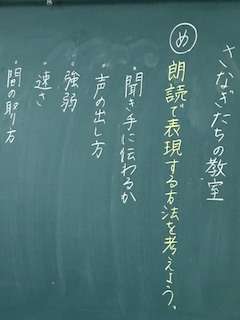 さなぎたちの教室
め 朗読で表現する方法を考えよう。
・聞き手に伝わるか
・声の出し方
・強弱
・速さ
・間の取り方